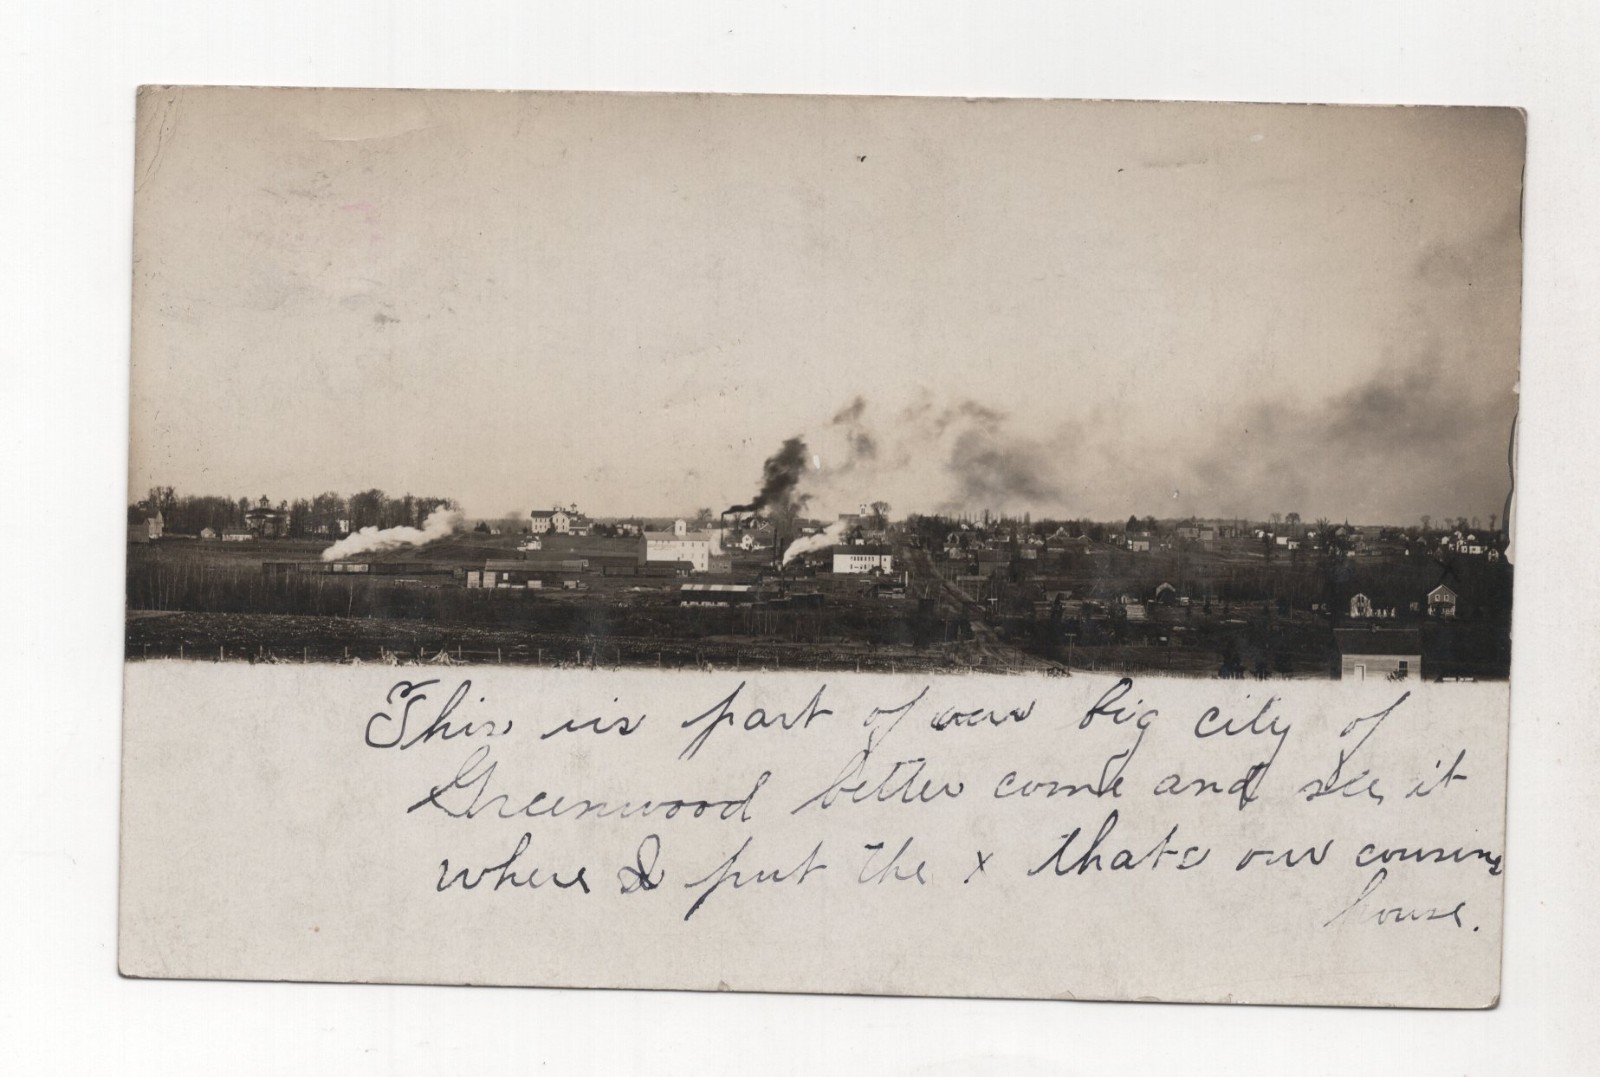 This is part of our big city of
Greenwood better come and see it
where I put the x thats our cousins
house.